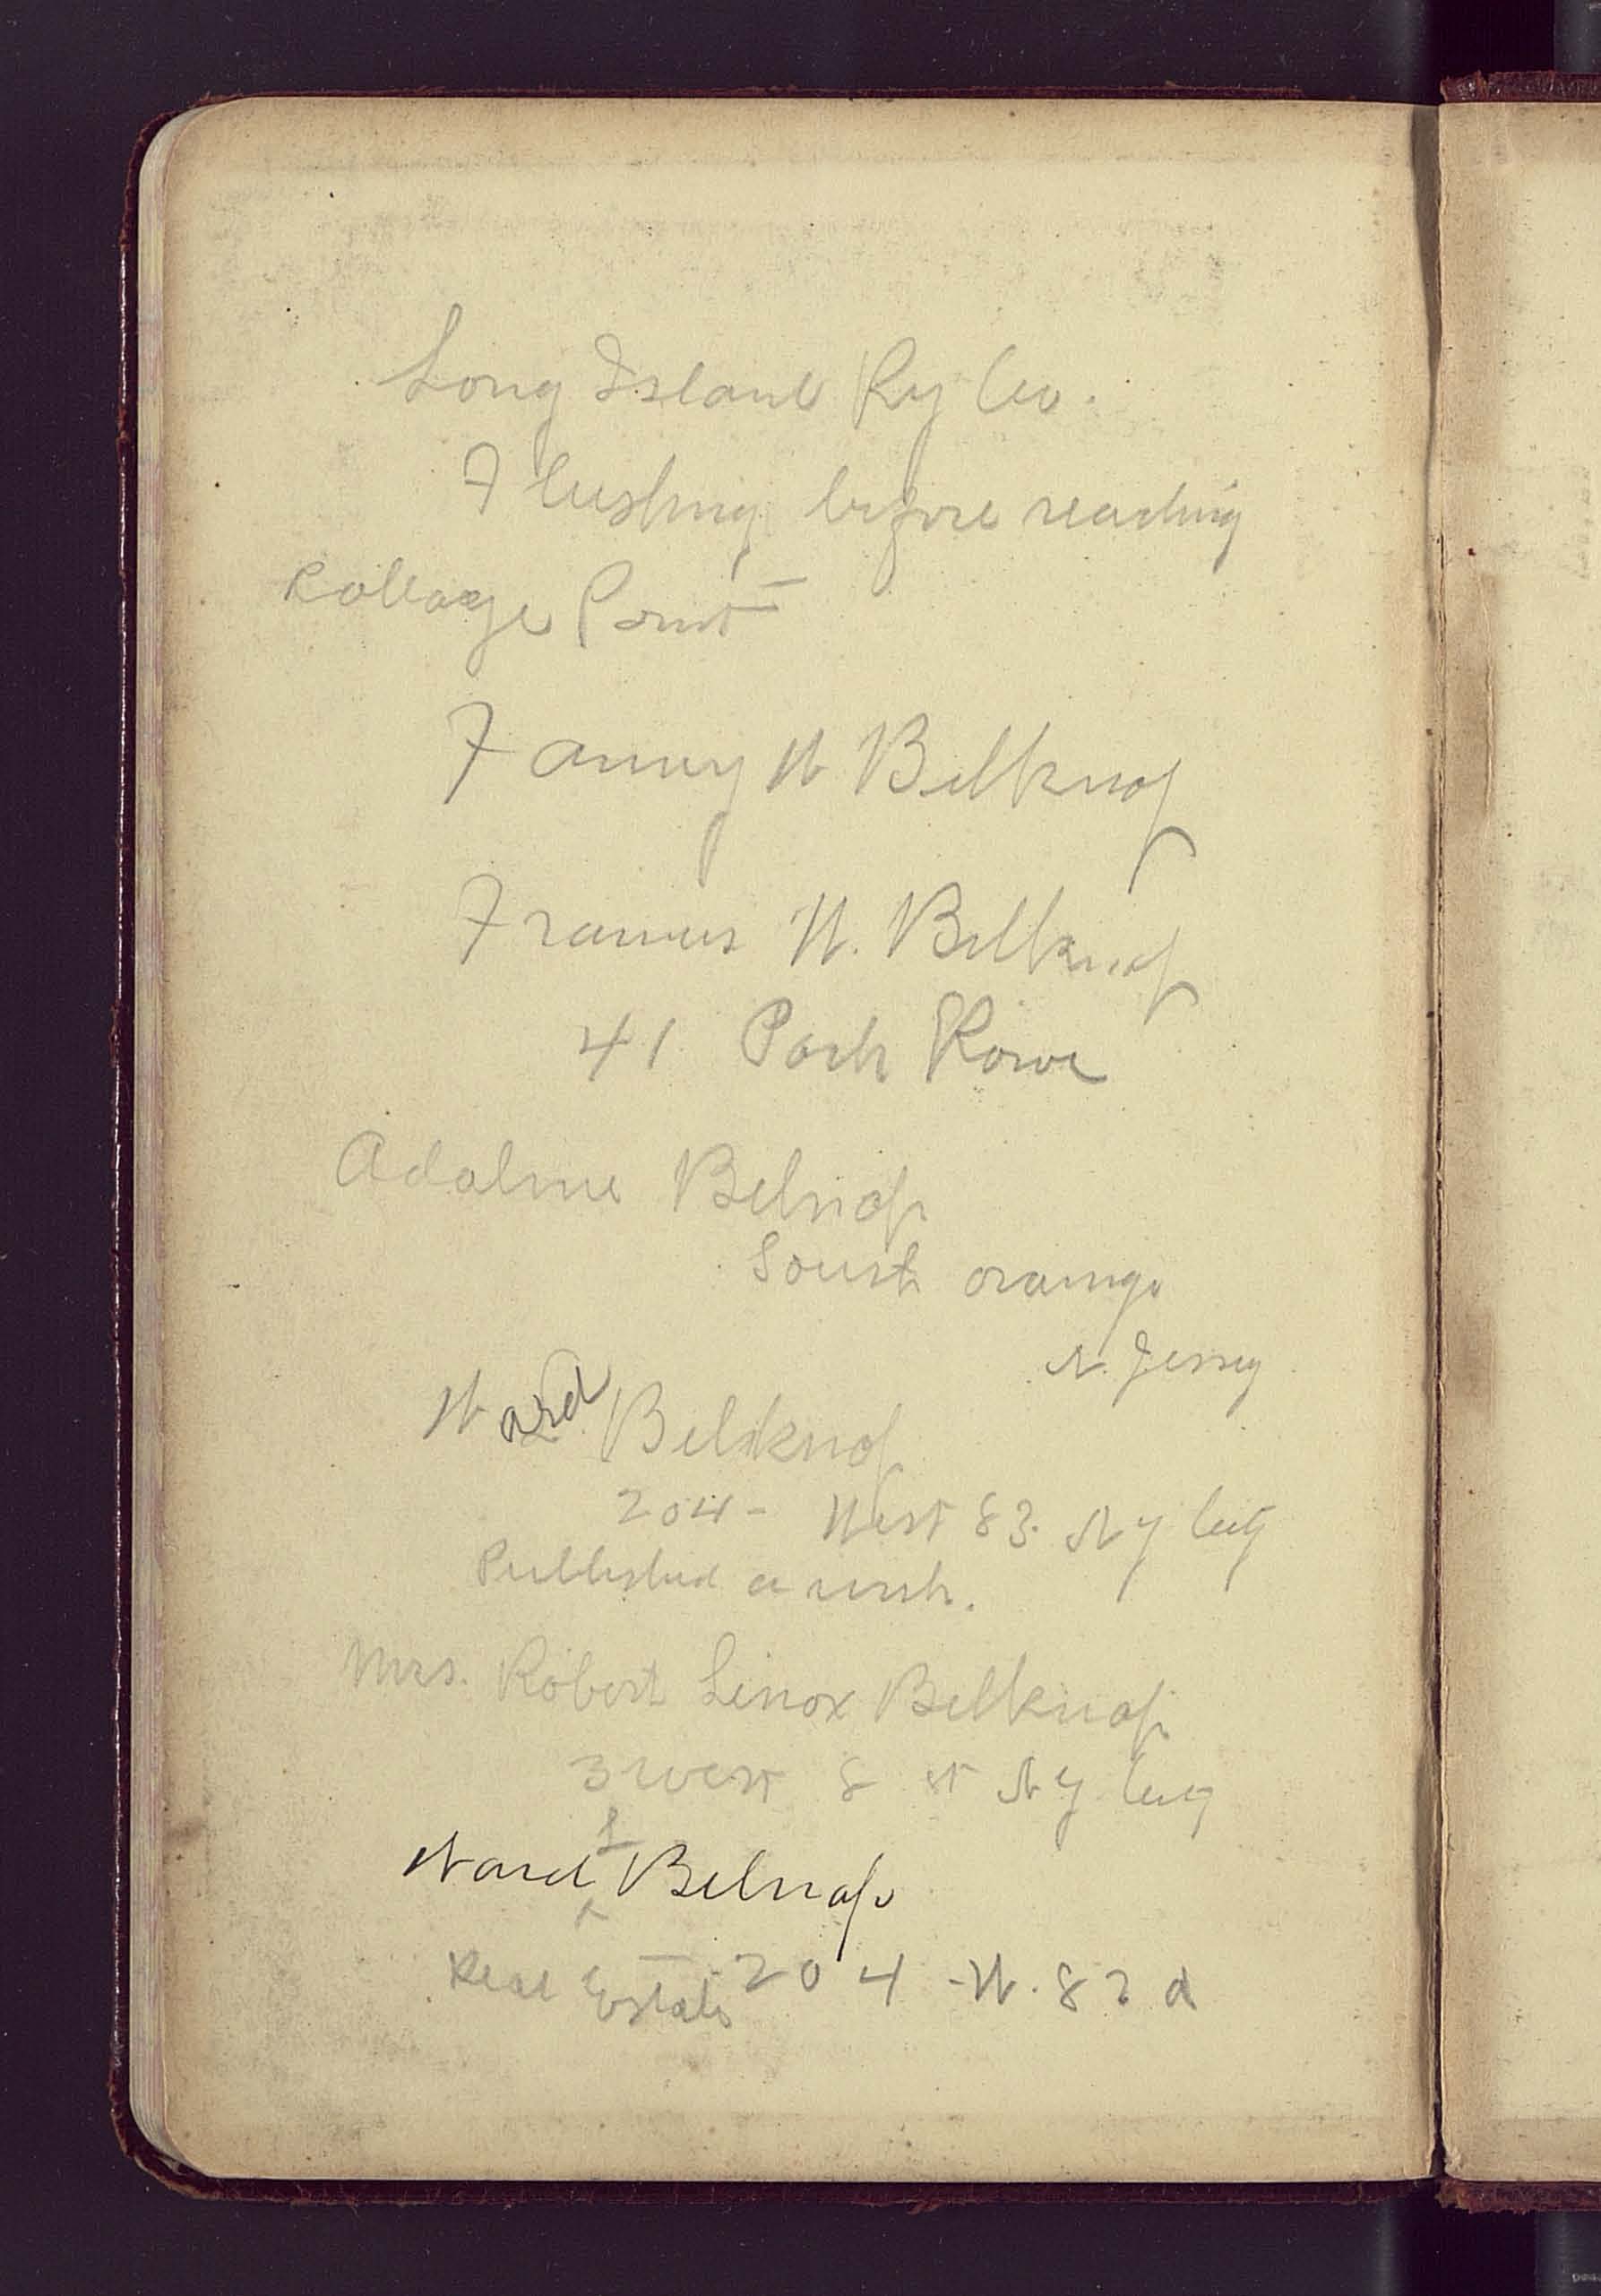 Long Island Ry Co.
Flushing before reaching
Collage Point
Fanny W Belknap
Francis W. Belknap
41 Park Rowe
Adaline Belnap
South orange
N. Jersey
Ward Belknap
204 - West 83. N Y City
Published a
Mrs. Robert Linox Belknap
3 west 8 st N Y City
L
Ward Belnap
Real Estate 204 - W. 82 d